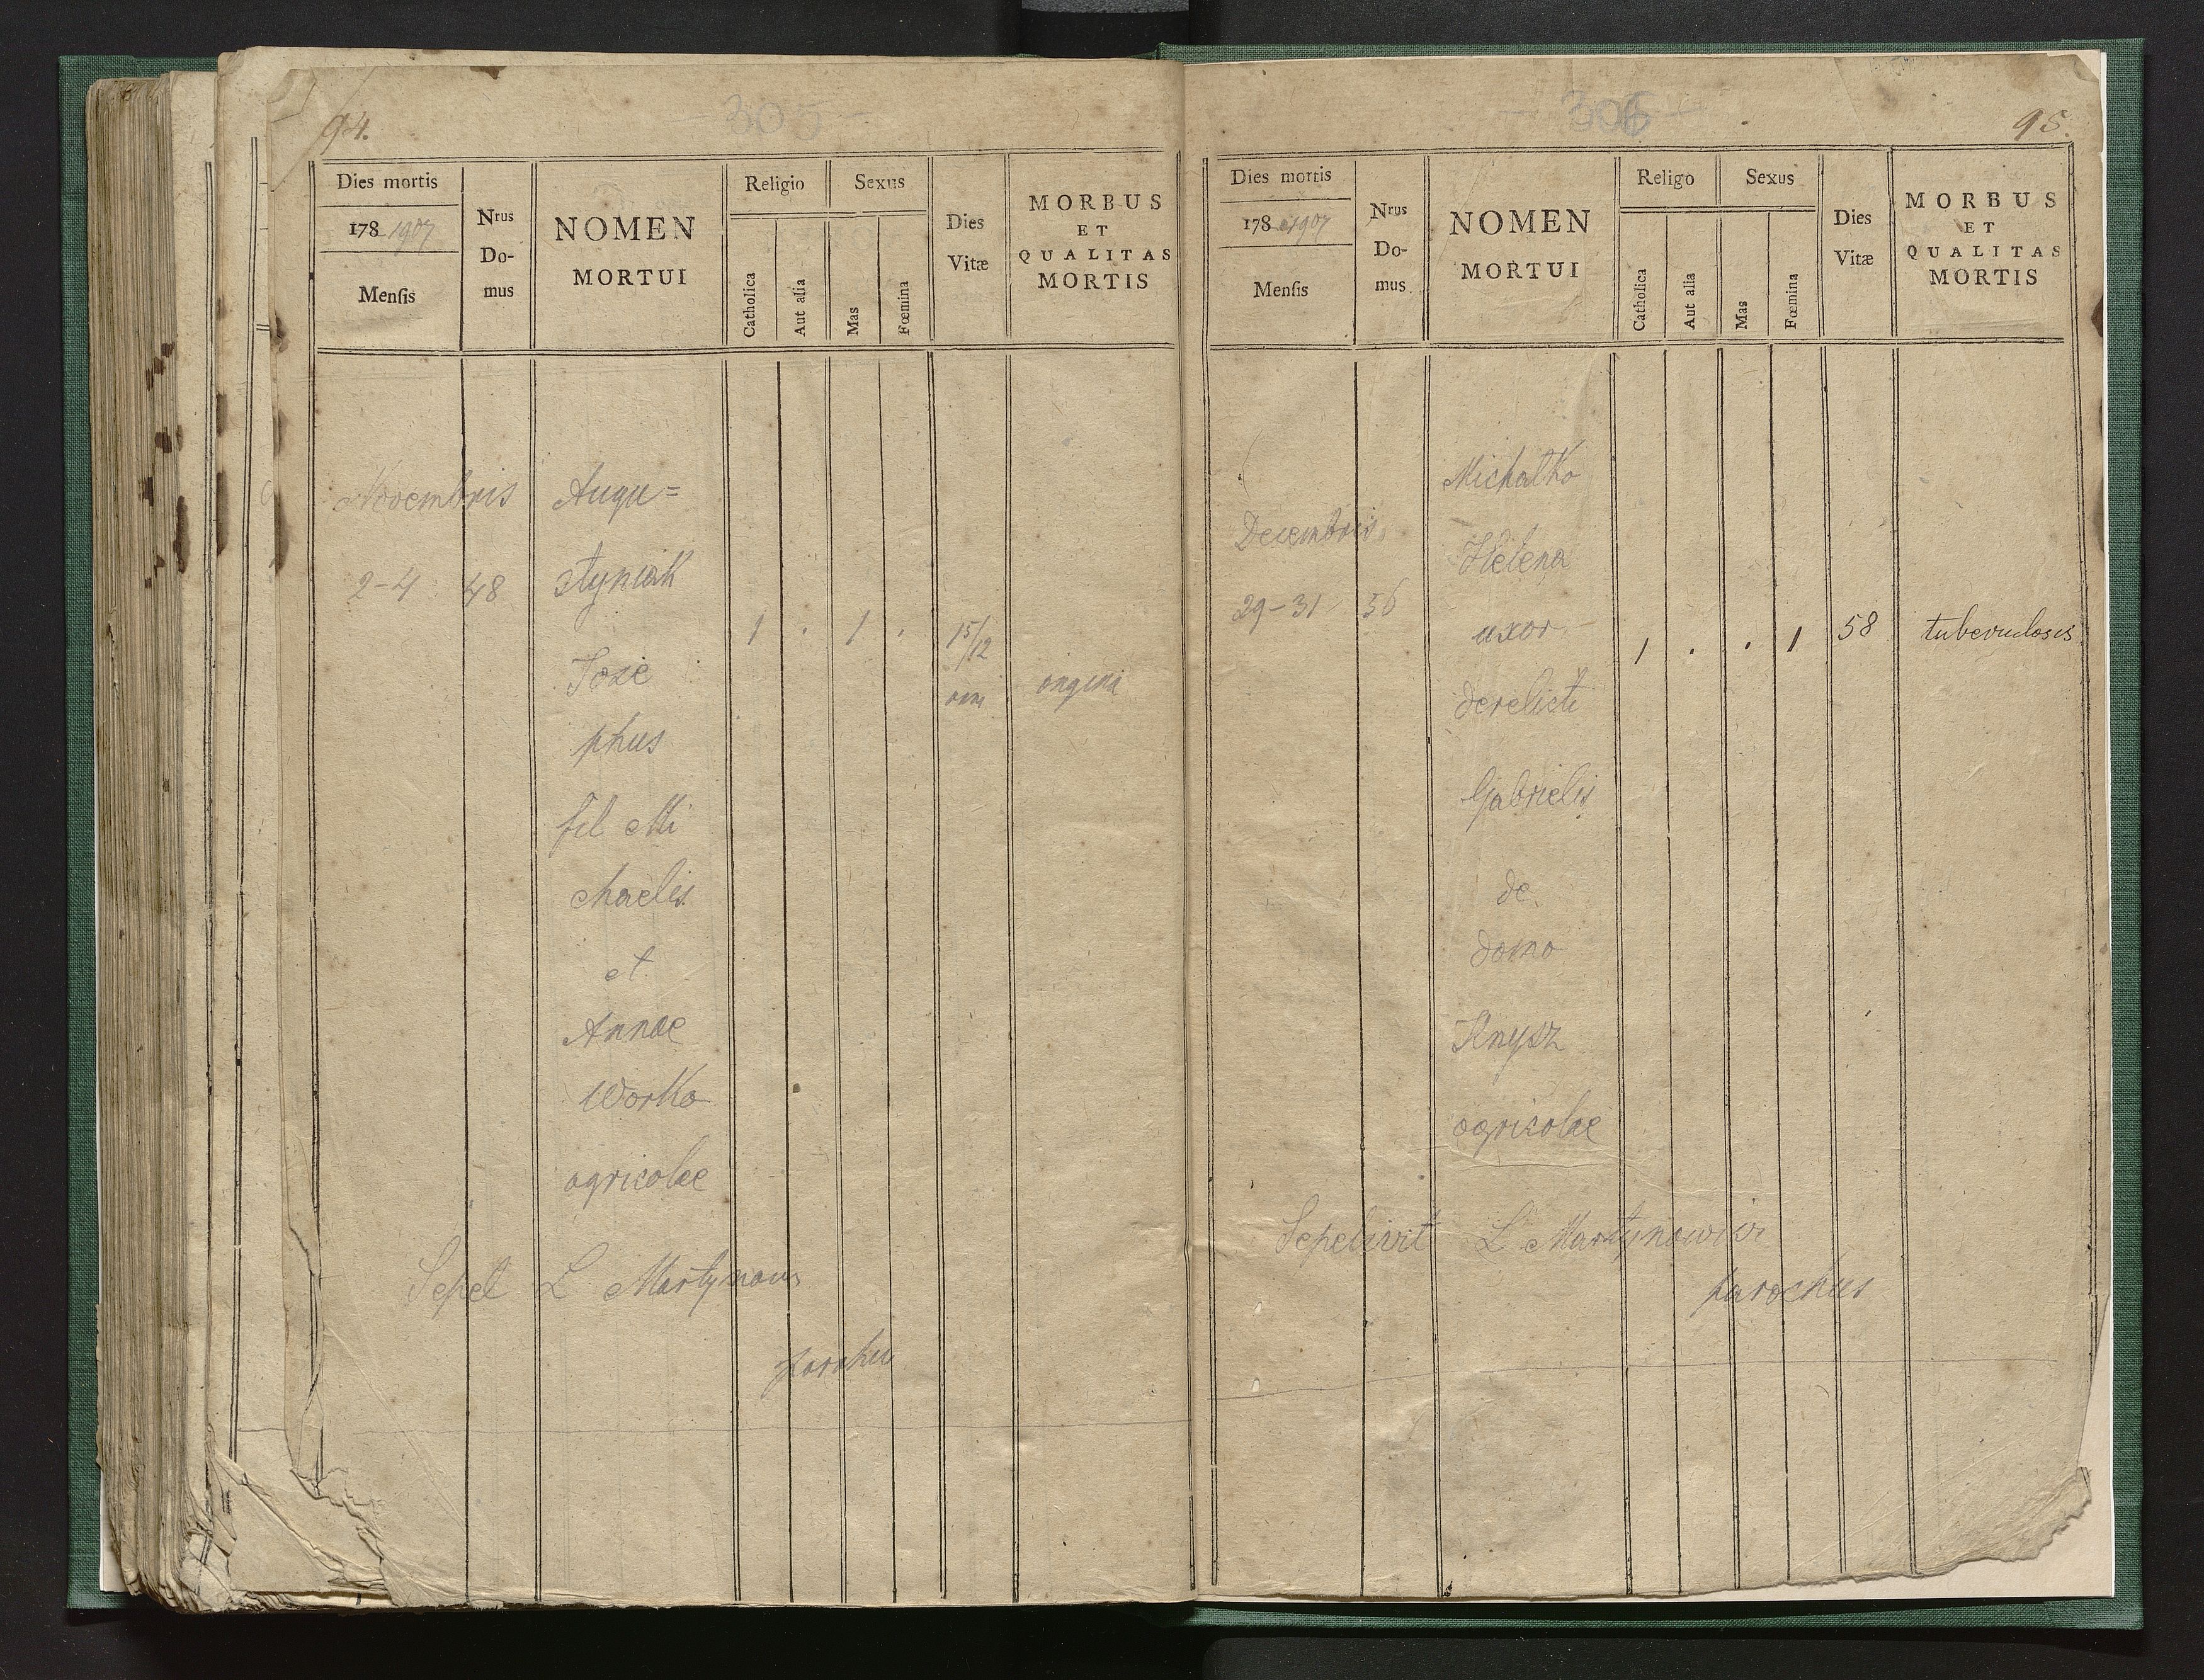 94.
- 305 -
Dies mortis
178 1907
Mensis
Nrus
Do-
mus
NOMEN
MORTUI
Religio
Catholica
Aut alia
Sexus
Mas
Fœmina
Dies
Vitæ
MORBUS
ET
QUALITAS
MORTIS
Novembris
2-4
48
Augu=
styniak
Jose
phus
fil Mi
chaelis
et
Annae
Worko
agricolae
1 . 1 .
15/12
angina
Sepel L Martynow
parochu
- 306 -
95.
Dies mortis
178 1907
Mensis
Nrus
Do-
mus
NOMEN
MORTUI
Religo
Catholica
Aut alia
Sexus
Mas
Fœmina
Dies
Vitæ
MORBUS
ET
QUALITAS
MORTIS
Decembris
29-31
56
Michalko
Helena
uxor
derelicti
Gabrielis
de
domo
Knysz
agricolae
1 . . 1
58
tuberculosis
Sepelivit L Martynowicz
parochus